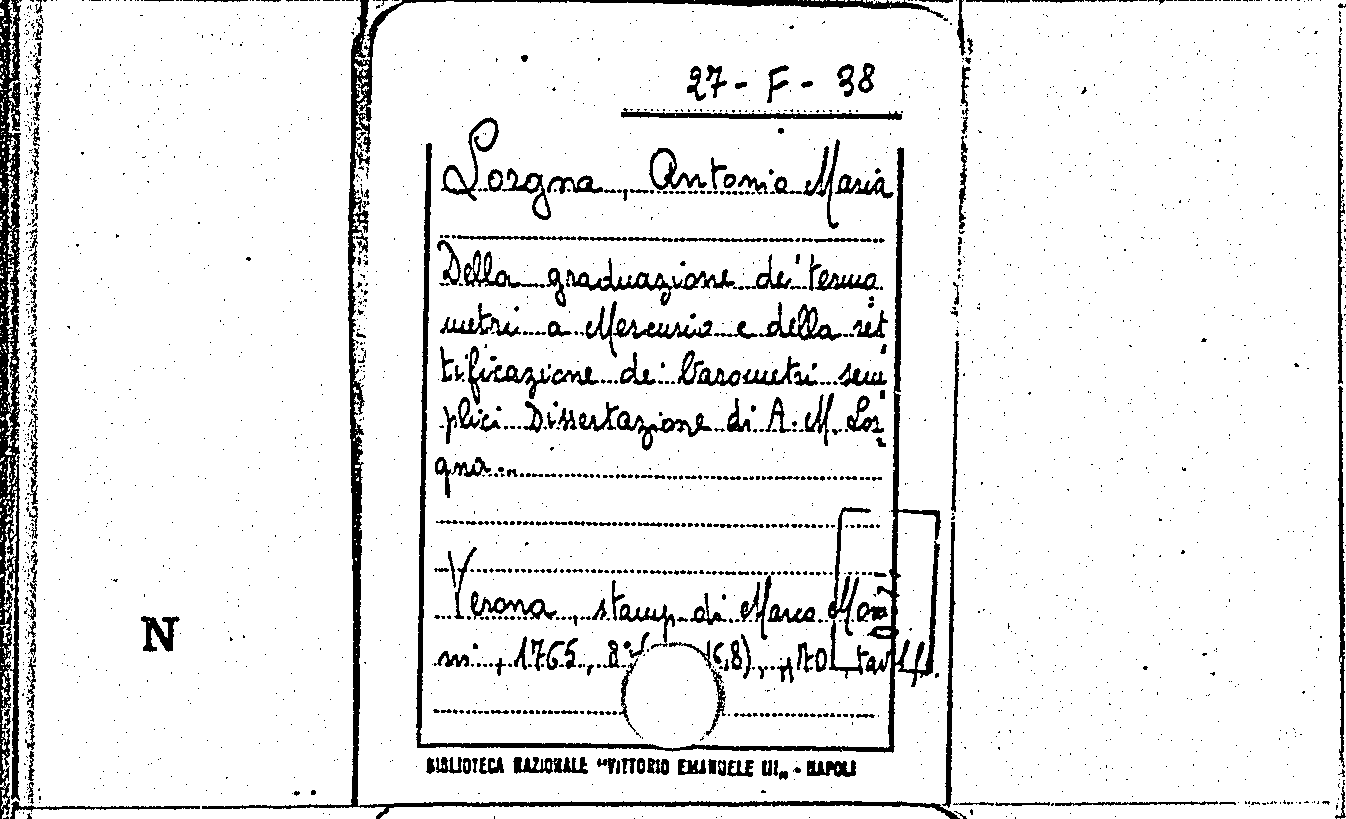 27 - F - 38
Lorgna, Antonio Maria
Della graduazione de' termo
metri a Mercurio e della ret
tificazione de' barometri sem
plici Dissertazione di A. M. Lor
gna...
Verona, stamp. di Marco Moro
ni, 1765, 8º 6,8), 70 tav
N
BIBLIOTECA NAZIONALE "VITTORIO EMANUELE III„ - NAPOLI